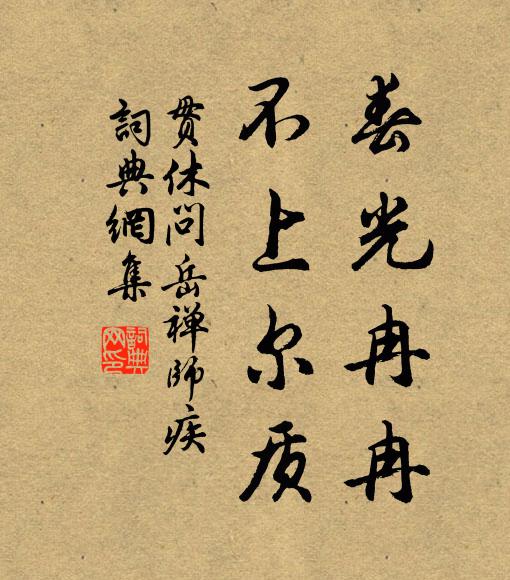 春光冉冉
不上尔质
贯休问岳禅師疾
詞典網集
詞典网印